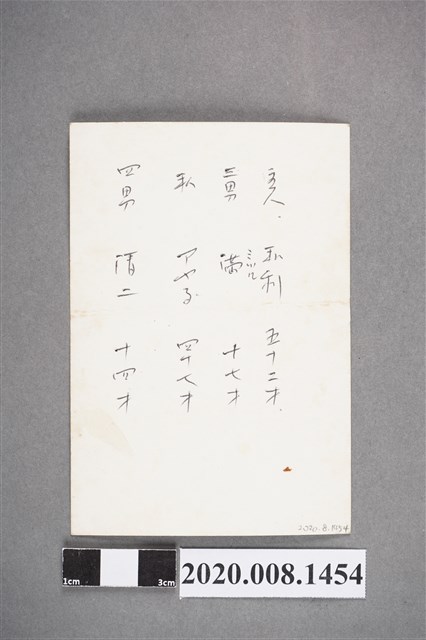 主人、 弥利 五十二才.
三男 満 ミツル 十七才
私 アヤ子 四十七才
四男 清二 十四才
2020.8.1454
1cm
3cm
2020.008.1454